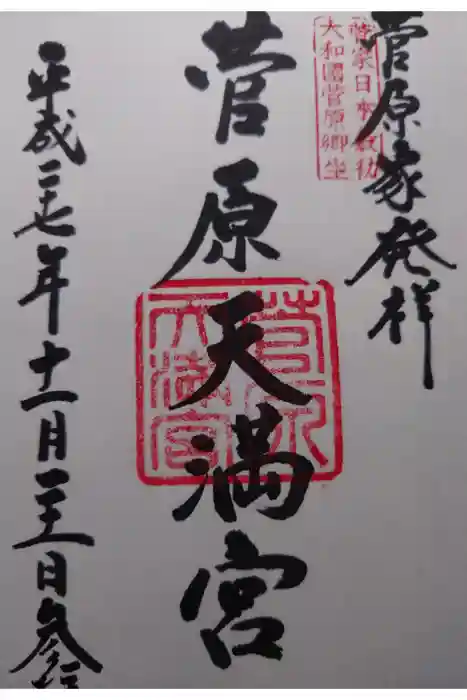 菅原家発祥
菅家日本最初
大和國菅原郷坐
菅原天満宮
菅原
天満宮
平成二十七年十一月 日参拝